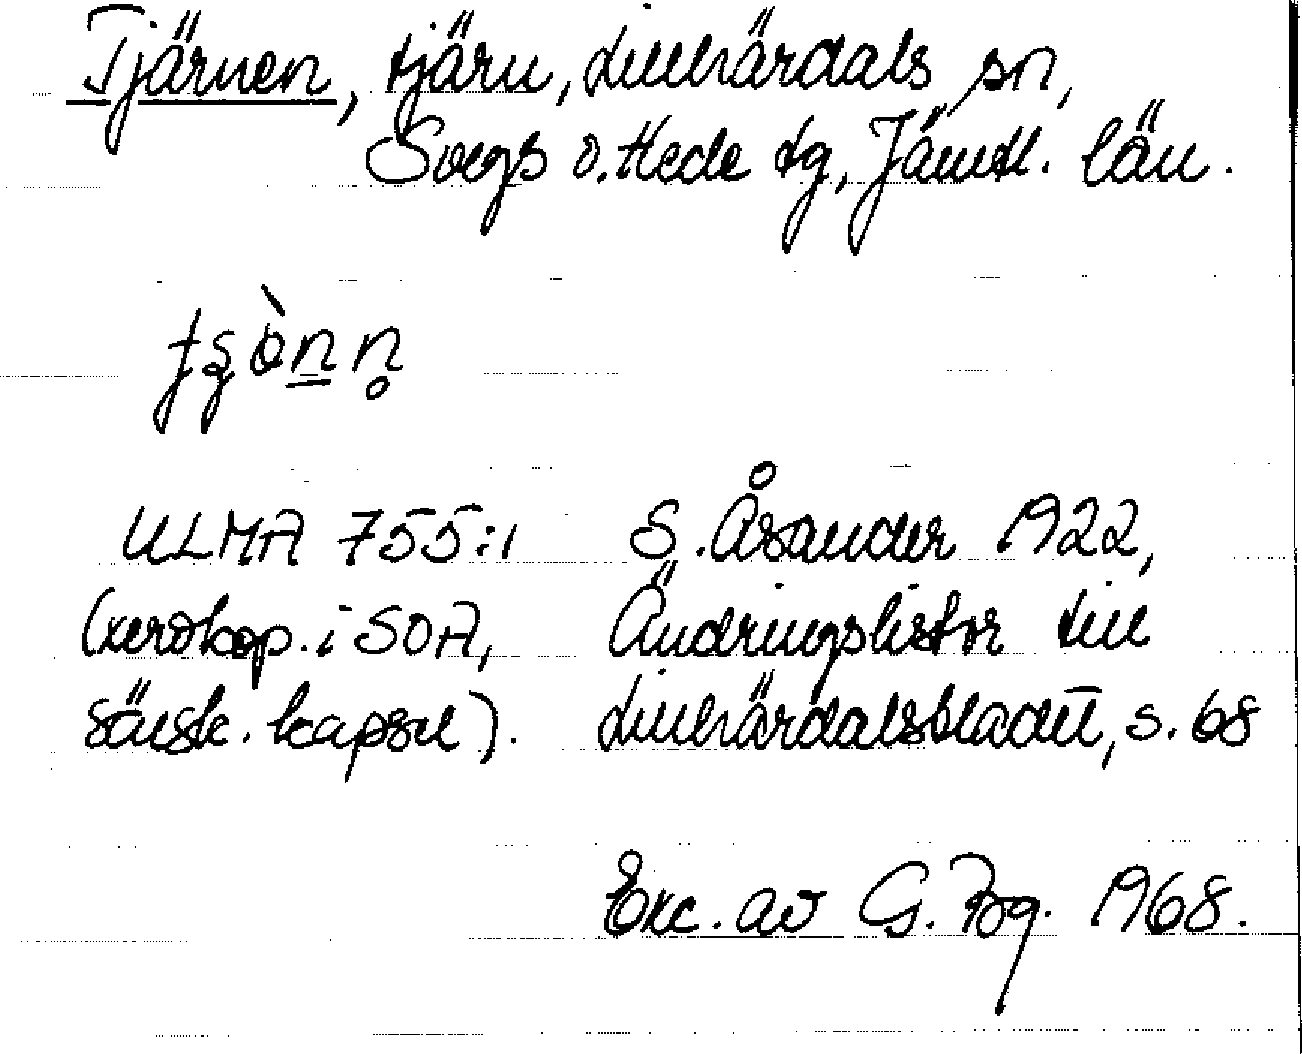 Tjärnen, tjärn, Lillhärdals sn,
Svegs o. Hede tg, Jämtl. län.
ULMA 755:1 S. Åsander 1922,
(xerokop. i SOA, Ändringslistor till
särsk. kapsel). Lillhärdalsbladet, s. 68
Exc. av G. 1968.